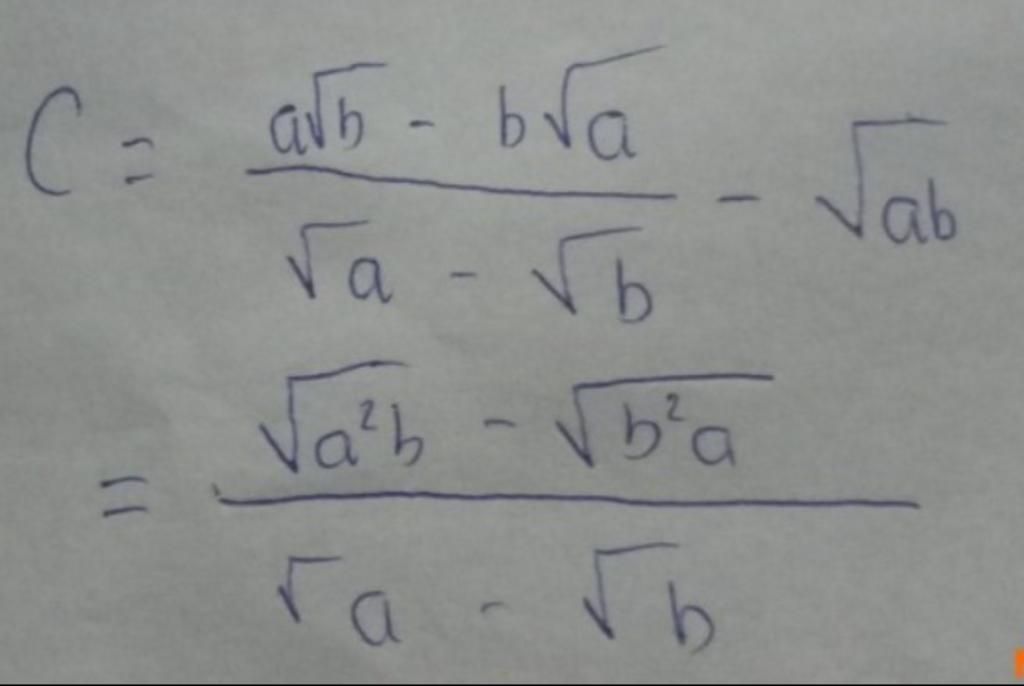 C = \frac{a\sqrt{b} - b\sqrt{a}}{\sqrt{a} - \sqrt{b}} - \sqrt{ab}
= \frac{\sqrt{a^2b} - \sqrt{b^2a}}{\sqrt{a} - \sqrt{b}}